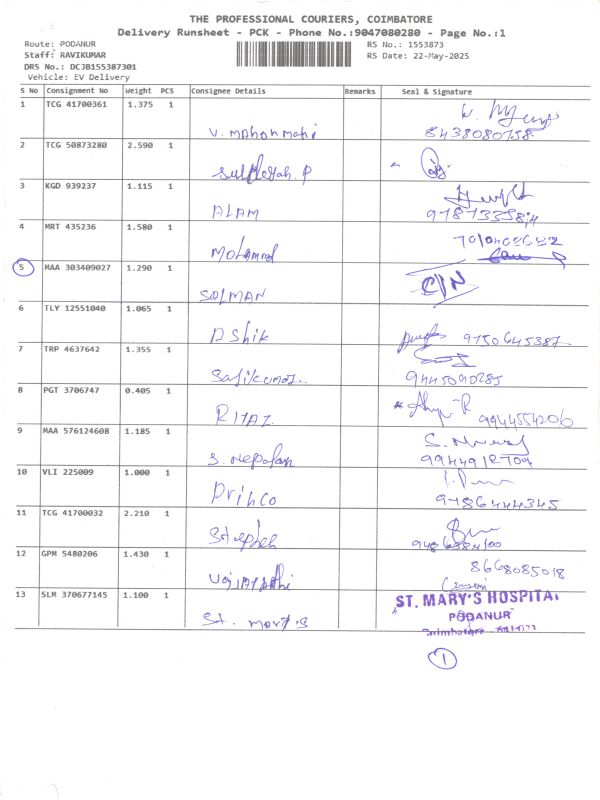 THE PROFESSIONAL COURIERS, COIMBATORE
Delivery Runsheet - PCK - Phone No.:9047080280 - Page No.:1
Route: PODANUR RS No.: 1553873
Staff: RAVIKUMAR RS Date: 22-May-2025
DRS No.: DCJB155387301
Vehicle: EV Delivery
S No Consignment No Weight PCS Consignee Details Remarks Seal & Signature
1 TCG 41700361 1.375 1
8438080758
2 TCG 50873280 2.590 1
3 KGD 939237 1.115 1
ALAM
4 MRT 435236 1.580 1
5 MAA 303409027 1.290 1
SALMAN
6 TLY 12551040 1.065 1
Ashik 9750645387
7 TRP 4637642 1.355 1
9445090285
8 PGT 3706747 0.405 1
RIYAZ
9 MAA 576124608 1.185 1
S. Nepolan
10 VLI 225009 1.000 1
Princo 9786444345
11 TCG 41700032 2.210 1
Stephen
12 GPM 5480206 1.430 1
8668085018
13 SLM 370677145 1.100 1
ST. MARY'S HOSPITAL
PODANUR
St. Mary's Coimbatore
1